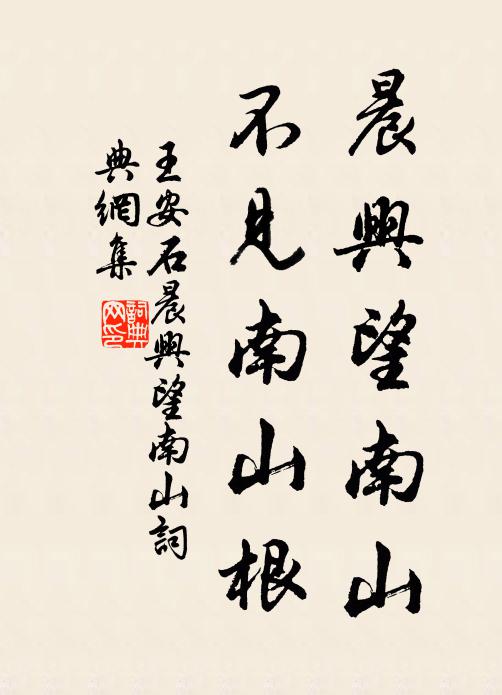 晨興望南山
不見南山根
王安石晨興望南山詞
典網集
詞典
网印